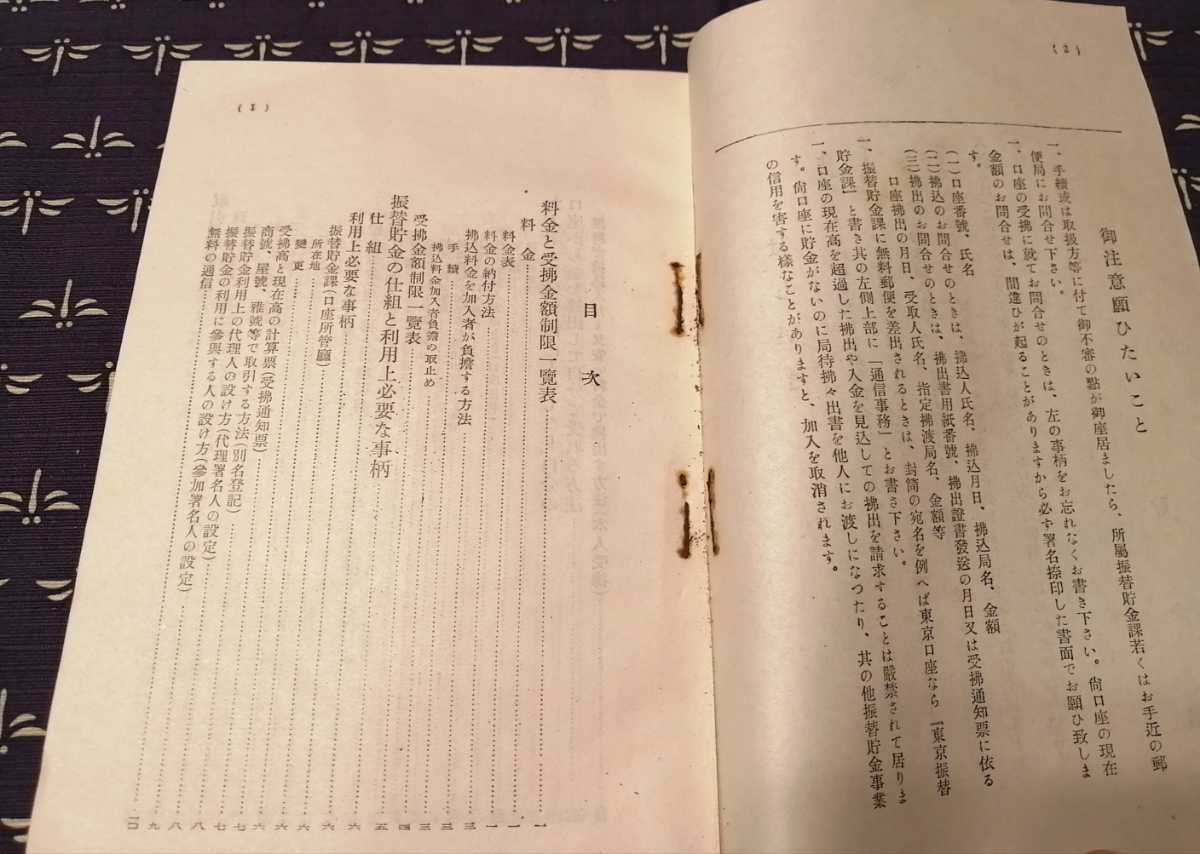 (2)
御注意願ひたいこと
一、手續或は取扱方等に付て御不審の點が御座居ましたら、所屬振替貯金課若くはお手近の郵
便局にお問合せ下さい。
一、口座の受拂に就てお問合せのときは、左の事柄をお忘れなくお書き下さい。尙口座の現在
金額のお問合せは、間違ひが起ることがありますから必ず署名捺印した書面でお願ひ致しま
す。
(一)口座番號、氏名
(二)拂込のお問合せのときは、拂込人氏名、拂込月日、拂込局名、金額
(三)拂出のお問合せのときは、拂出書用紙番號、拂出證書發送の月日又は受拂通知票に依る
口座拂出の月日、受取人氏名、指定拂渡局名、金額等
一、振替貯金課に無料郵便を差出されるときは、封筒の宛名を例へば東京口座なら『東京振替
貯金課』と書き其の左側上部に「通信事務」とお書き下さい。
一、口座の現在高を超過した拂出や入金を見込しての拂出を請求することは嚴禁されて居りま
す。尙口座に貯金がないのに局待拂々出書を他人にお渡しになつたり、其の他振替貯金事業
の信用を害する樣なことがありますと、加入を取消されます。
(1)
目次
料金と受拂金額制限一覽表……一
料金……一
料金表……一
料金の納付方法……一
拂込料金を加入者が負擔する方法……三
手續……三
拂込料金加入者負擔の取止め……三
受拂金額制限一覽表……四
振替貯金の仕組と利用上必要な事柄……五
仕組……五
利用上必要な事柄……六
振替貯金課(口座所管廳)……六
所在地……六
變更……六
受拂高と現在高の計算票(受拂通知票)……六
商號、屋號、雅號等で取引する方法(別名登記)……七
振替貯金利用上の代理人の設け方(代理署名人の設定)……八
振替貯金の利用に參與する人の設け方(參加署名人の設定)……九
無料の通信……一〇